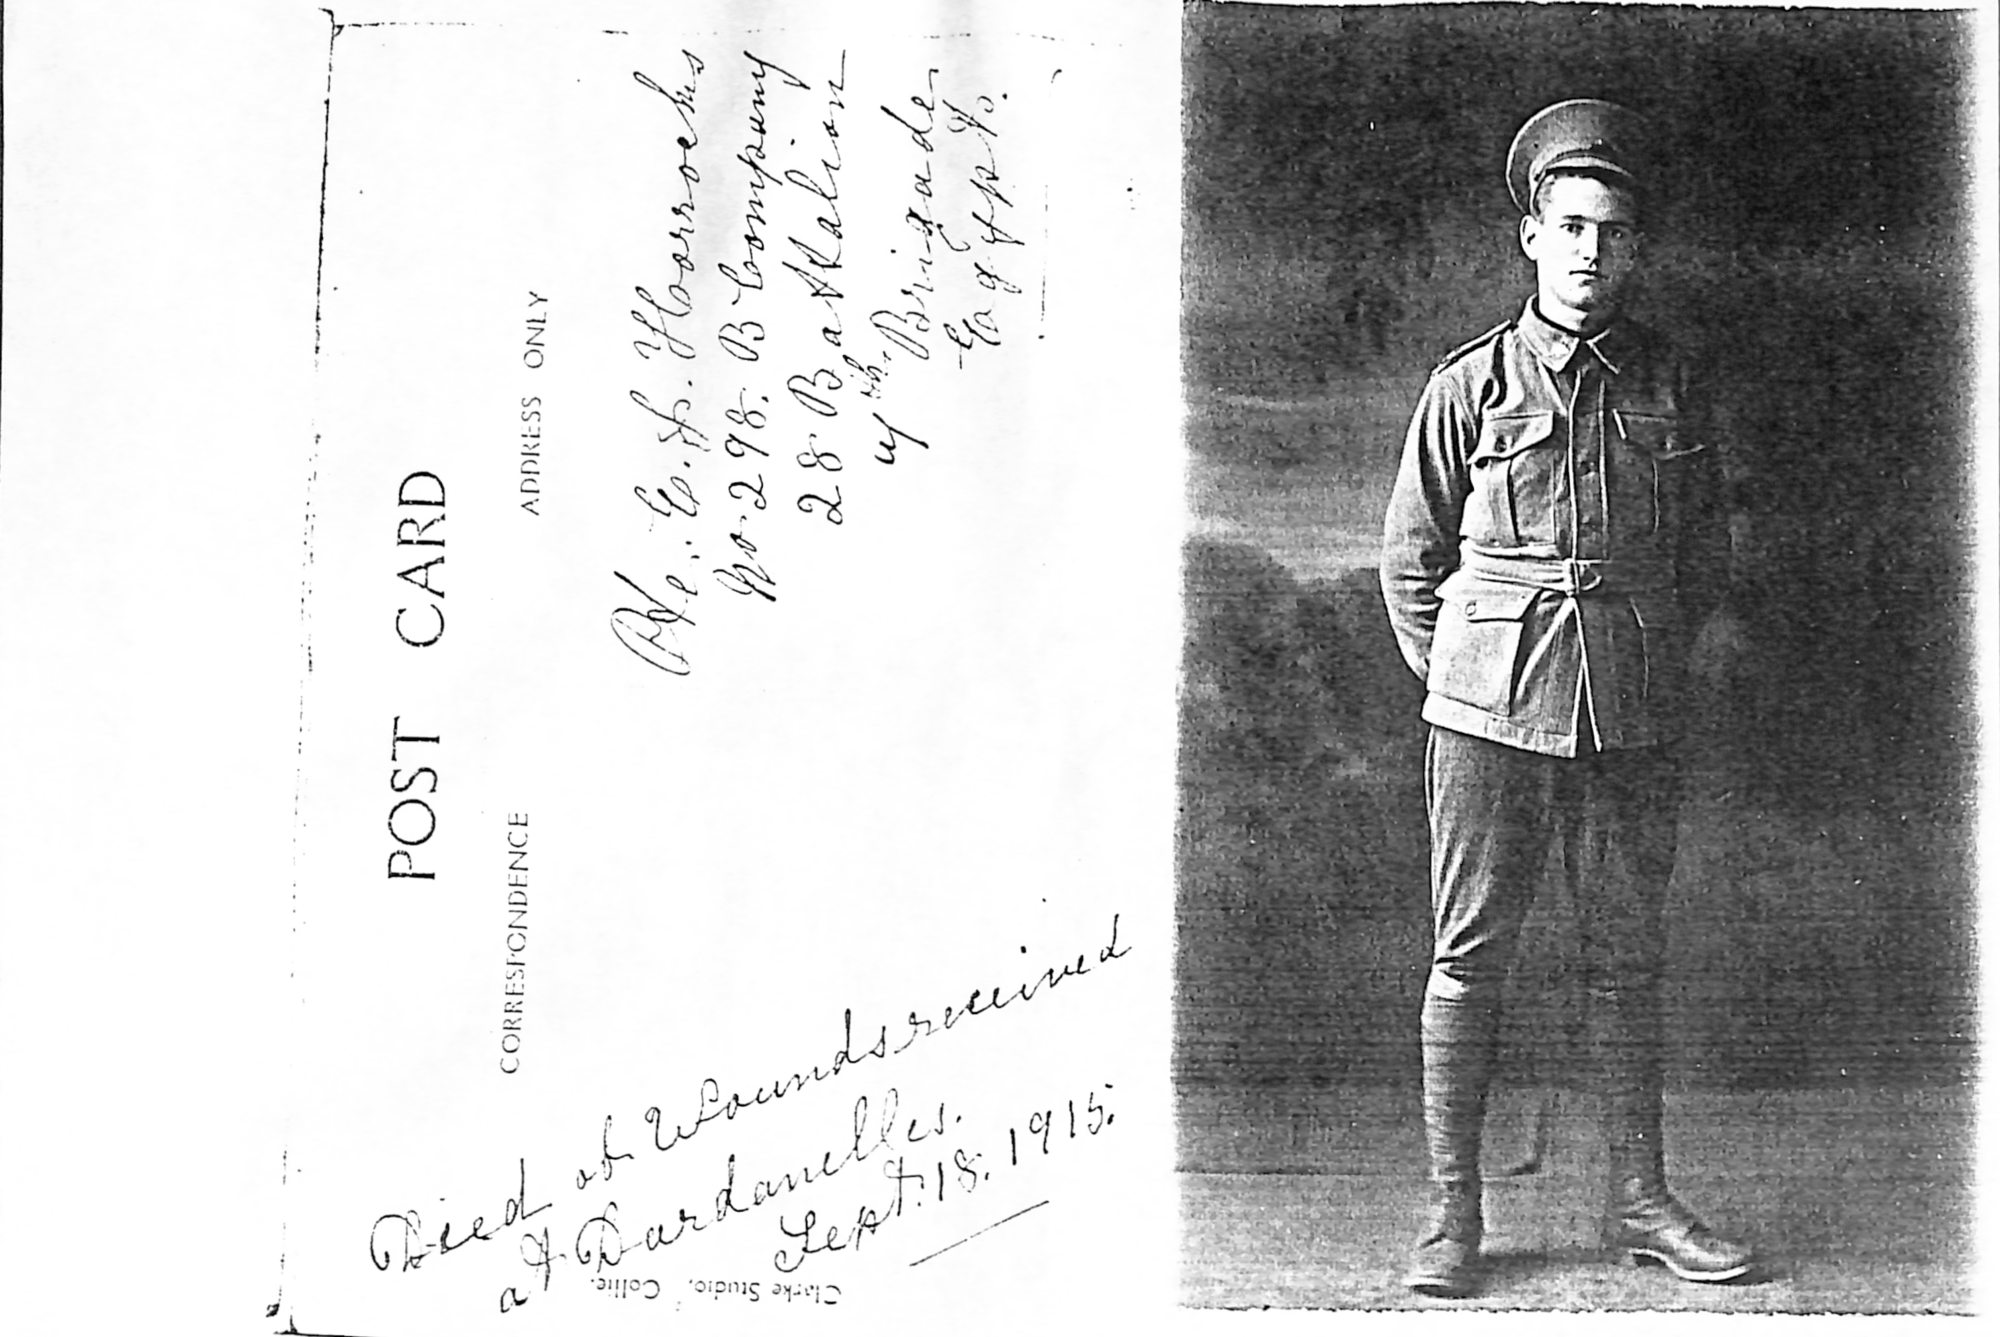 POST CARD
CORRESPONDENCE
ADDRESS ONLY
Pte. E. S. Horrocks
No. 298. B Company
28 Battalion
7th. Brigade
Egypt.
Died of Wounds received
at Dardanelles.
Sept. 18. 1915.
Clarke Studio, Collie.